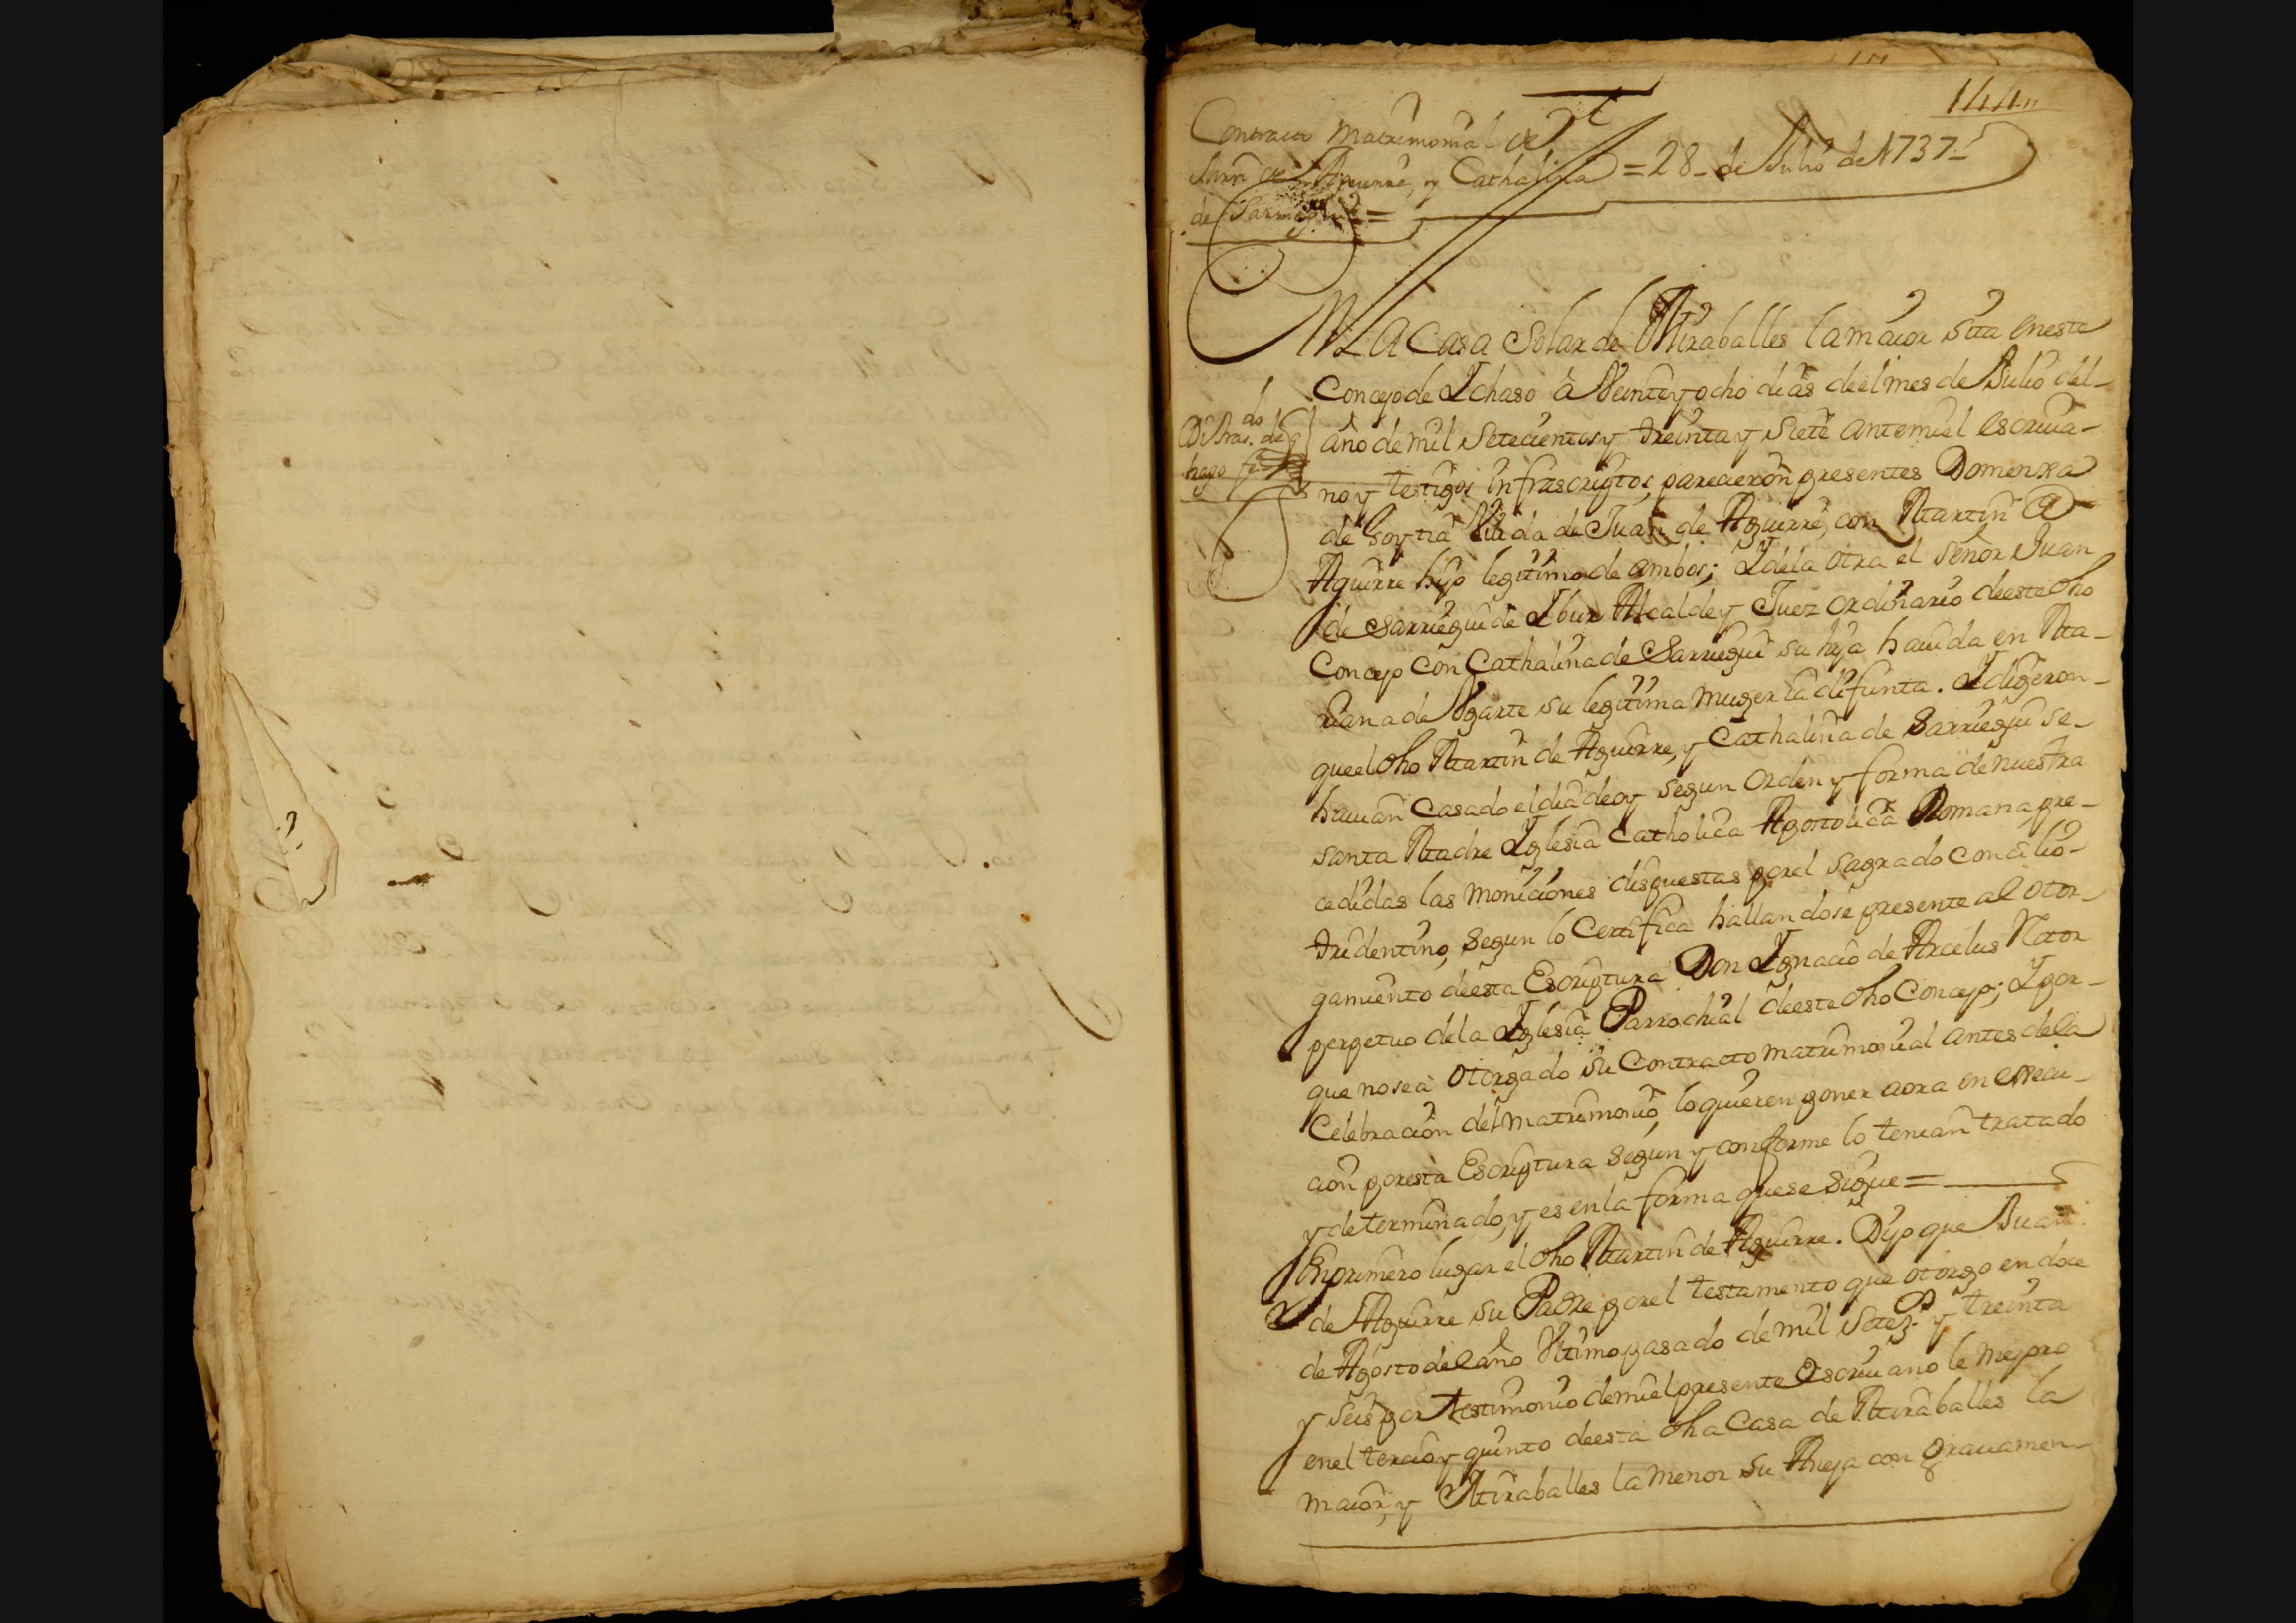 144
Contracto Matrimonial de
Mrn de Aguirre, y Cathalina = 28 - de Julio de 1737 -
de Sarriegui =
En LA Casa Solar de Miraballes la maior sita en este
Concejo de Ichaso à Veinte y ocho dias de el mes de Julio del -
año de mil Setecientos y treinta y siete ante mi el escriua -
no y testigos infrascriptos, parecieron presentes Domenxa
de Viuda de Juan de Aguirre, con Martin de
Aguirre hijo legitimo de ambos; I de la otra el señor Juan
de Sarriegui de Ibur Alcalde y Juez ordinario de este dho
Concejo con Cathalina de Sarriegui su hija hauida en Ma -
riana de Vgarte su legitima muger ia difunta. I digeron -
que el dho Martin de Aguirre, y Cathalina de Sarriegui se -
hauian Casado el dia de oy segun orden y forma de nuestra
santa Madre Iglesia Catholica Apostolica Romana pre -
cedidas las moniciones dispuestas por el sagrado Concilio -
tridentino, segun lo Certifica hallandose presente al otor -
gamiento de esta Escriptura Don Ignacio de Arcelus Rector
perpetuo de la Iglesia Parrochial de este dho Concejo; I por -
que no se à otorgado su Contracto matrimonial antes de la
Celebracion del Matrimonio, lo quieren poner aora en essecu -
cion por esta Escriptura segun y conforme lo tenian tratado
y determinado, y es en la forma que se sigue =
En primero lugar el dho Martin de Aguirre. Dijo que Juan
de Aguirre su Padre por el testamento que otorgo en doce
de Agosto del año Vltimo pasado de mil Setez.s y treinta
y seis por testimonio de mi el presente escriuano le mejoro
en el tercio y quinto de esta dha Casa de Miraballes la
maior, y Miraballes la menor su Aneja con Grauamen -
do
hago fe